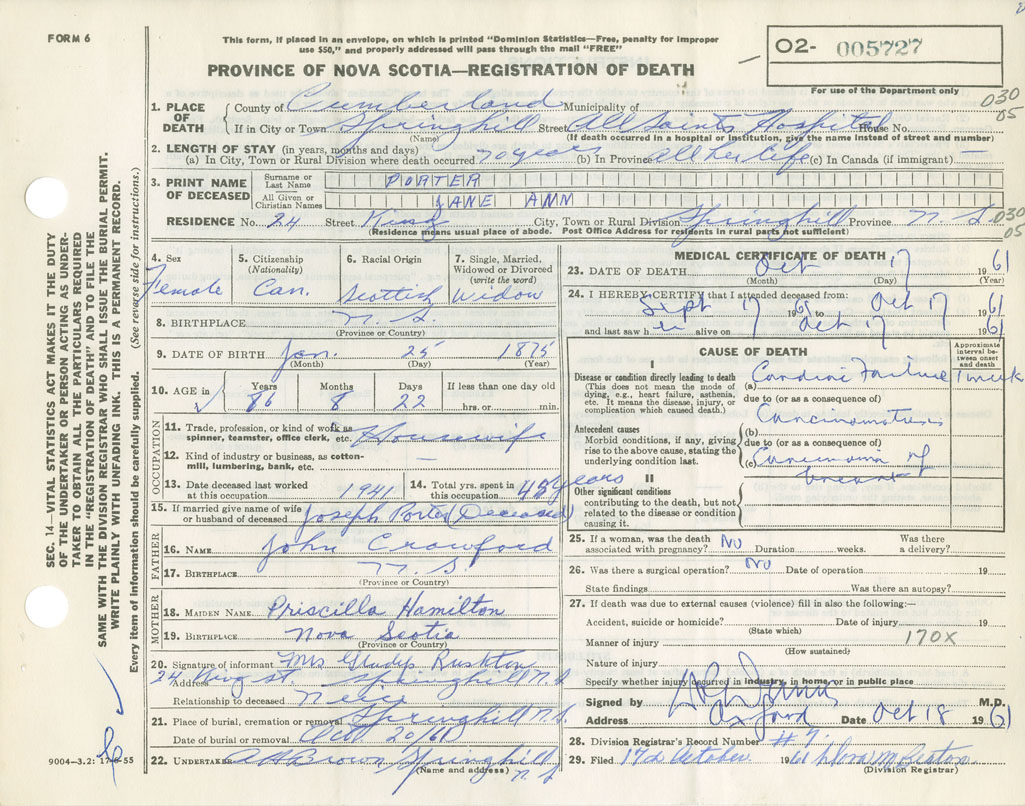 FORM 6
This form, if placed in an envelope, on which is printed "Dominion Statistics—Free, penalty for improper
use $50," and properly addressed will pass through the mail "FREE"
PROVINCE OF NOVA SCOTIA—REGISTRATION OF DEATH
O2- 005727
For use of the Department only
030
05
1. PLACE OF DEATH
County of Cumberland Municipality of
If in City or Town Springhill Street All Saints Hospital House No.
(Name) (If death occurred in a hospital or institution, give the name instead of street and number)
2. LENGTH OF STAY (in years, months and days)
(a) In City, Town or Rural Division where death occurred 70 years (b) In Province all her life (c) In Canada (if immigrant) —
3. PRINT NAME OF DECEASED
Surname or Last Name PORTER
All Given or Christian Names JANE ANN
RESIDENCE No. 24 Street King City, Town or Rural Division Springhill Province N.S.
030
05
(Residence means usual place of abode. Post Office Address for residents in rural parts not sufficient)
4. Sex
Female
5. Citizenship
(Nationality)
Can.
6. Racial Origin
Scottish
7. Single, Married,
Widowed or Divorced
(write the word)
Widow
8. BIRTHPLACE N.S.
(Province or Country)
9. DATE OF BIRTH Jan. 25 1875
(Month) (Day) (Year)
10. AGE in Years Months Days If less than one day old
86 8 22 hrs. or min.
OCCUPATION
11. Trade, profession, or kind of work as
spinner, teamster, office clerk, etc. Housewife
12. Kind of industry or business, as cotton-
mill, lumbering, bank, etc. —
13. Date deceased last worked
at this occupation 1941
14. Total yrs. spent in
this occupation 45 years
15. If married give name of wife
or husband of deceased Joseph Porter (Deceased)
FATHER
16. NAME John Crawford
17. BIRTHPLACE N.S.
(Province or Country)
MOTHER
18. MAIDEN NAME Priscilla Hamilton
19. BIRTHPLACE Nova Scotia
(Province or Country)
20. Signature of informant Mrs Gladys Rushton
Address 24 King St. Springhill N.S.
Relationship to deceased Niece
21. Place of burial, cremation or removal Springhill N.S.
Date of burial or removal Oct 20/61
22. UNDERTAKER A H Brown Springhill
(Name and address) N.S
MEDICAL CERTIFICATE OF DEATH
23. DATE OF DEATH Oct 17 1961
(Month) (Day) (Year)
24. I HEREBY CERTIFY that I attended deceased from:
Sept 17 1961 to Oct 17 1961
and last saw her alive on Oct 17 1961
CAUSE OF DEATH
Approximate
interval be-
tween onset
and death
I
Disease or condition directly leading to death
(This does not mean the mode of
dying, e.g., heart failure, asthenia,
etc. It means the disease, injury, or
complication which caused death.)
(a) Cardiac Failure 1 week
due to (or as a consequence of)
Antecedent causes
Morbid conditions, if any, giving
rise to the above cause, stating the
underlying condition last.
(b) Carcinomatosis
due to (or as a consequence of)
(c) Carcinoma of
breast
II
Other significant conditions
contributing to the death, but not
related to the disease or condition
causing it.
25. If a woman, was the death
associated with pregnancy? No Duration weeks. Was there
a delivery?
26. Was there a surgical operation? No Date of operation 19
State findings Was there an autopsy?
27. If death was due to external causes (violence) fill in also the following:—
Accident, suicide or homicide? Date of injury 19
(State which)
Manner of injury 170X
(How sustained)
Nature of injury
Specify whether injury occurred in industry, in home, or in public place
Signed by M.D.
Address Oxford Date Oct 18 1961
28. Division Registrar's Record Number #9.
29. Filed October 1961
(Division Registrar)
SEC. 14—VITAL STATISTICS ACT MAKES IT THE DUTY
OF THE UNDERTAKER OR PERSON ACTING AS UNDER-
TAKER TO OBTAIN ALL THE PARTICULARS REQUIRED
IN THE "REGISTRATION OF DEATH" AND TO FILE THE
SAME WITH THE DIVISION REGISTRAR WHO SHALL ISSUE THE BURIAL PERMIT.
WRITE PLAINLY WITH UNFADING INK. THIS IS A PERMANENT RECORD.
Every item of information should be carefully supplied. (See reverse side for instructions.)
9004-3.2: 17-6-55